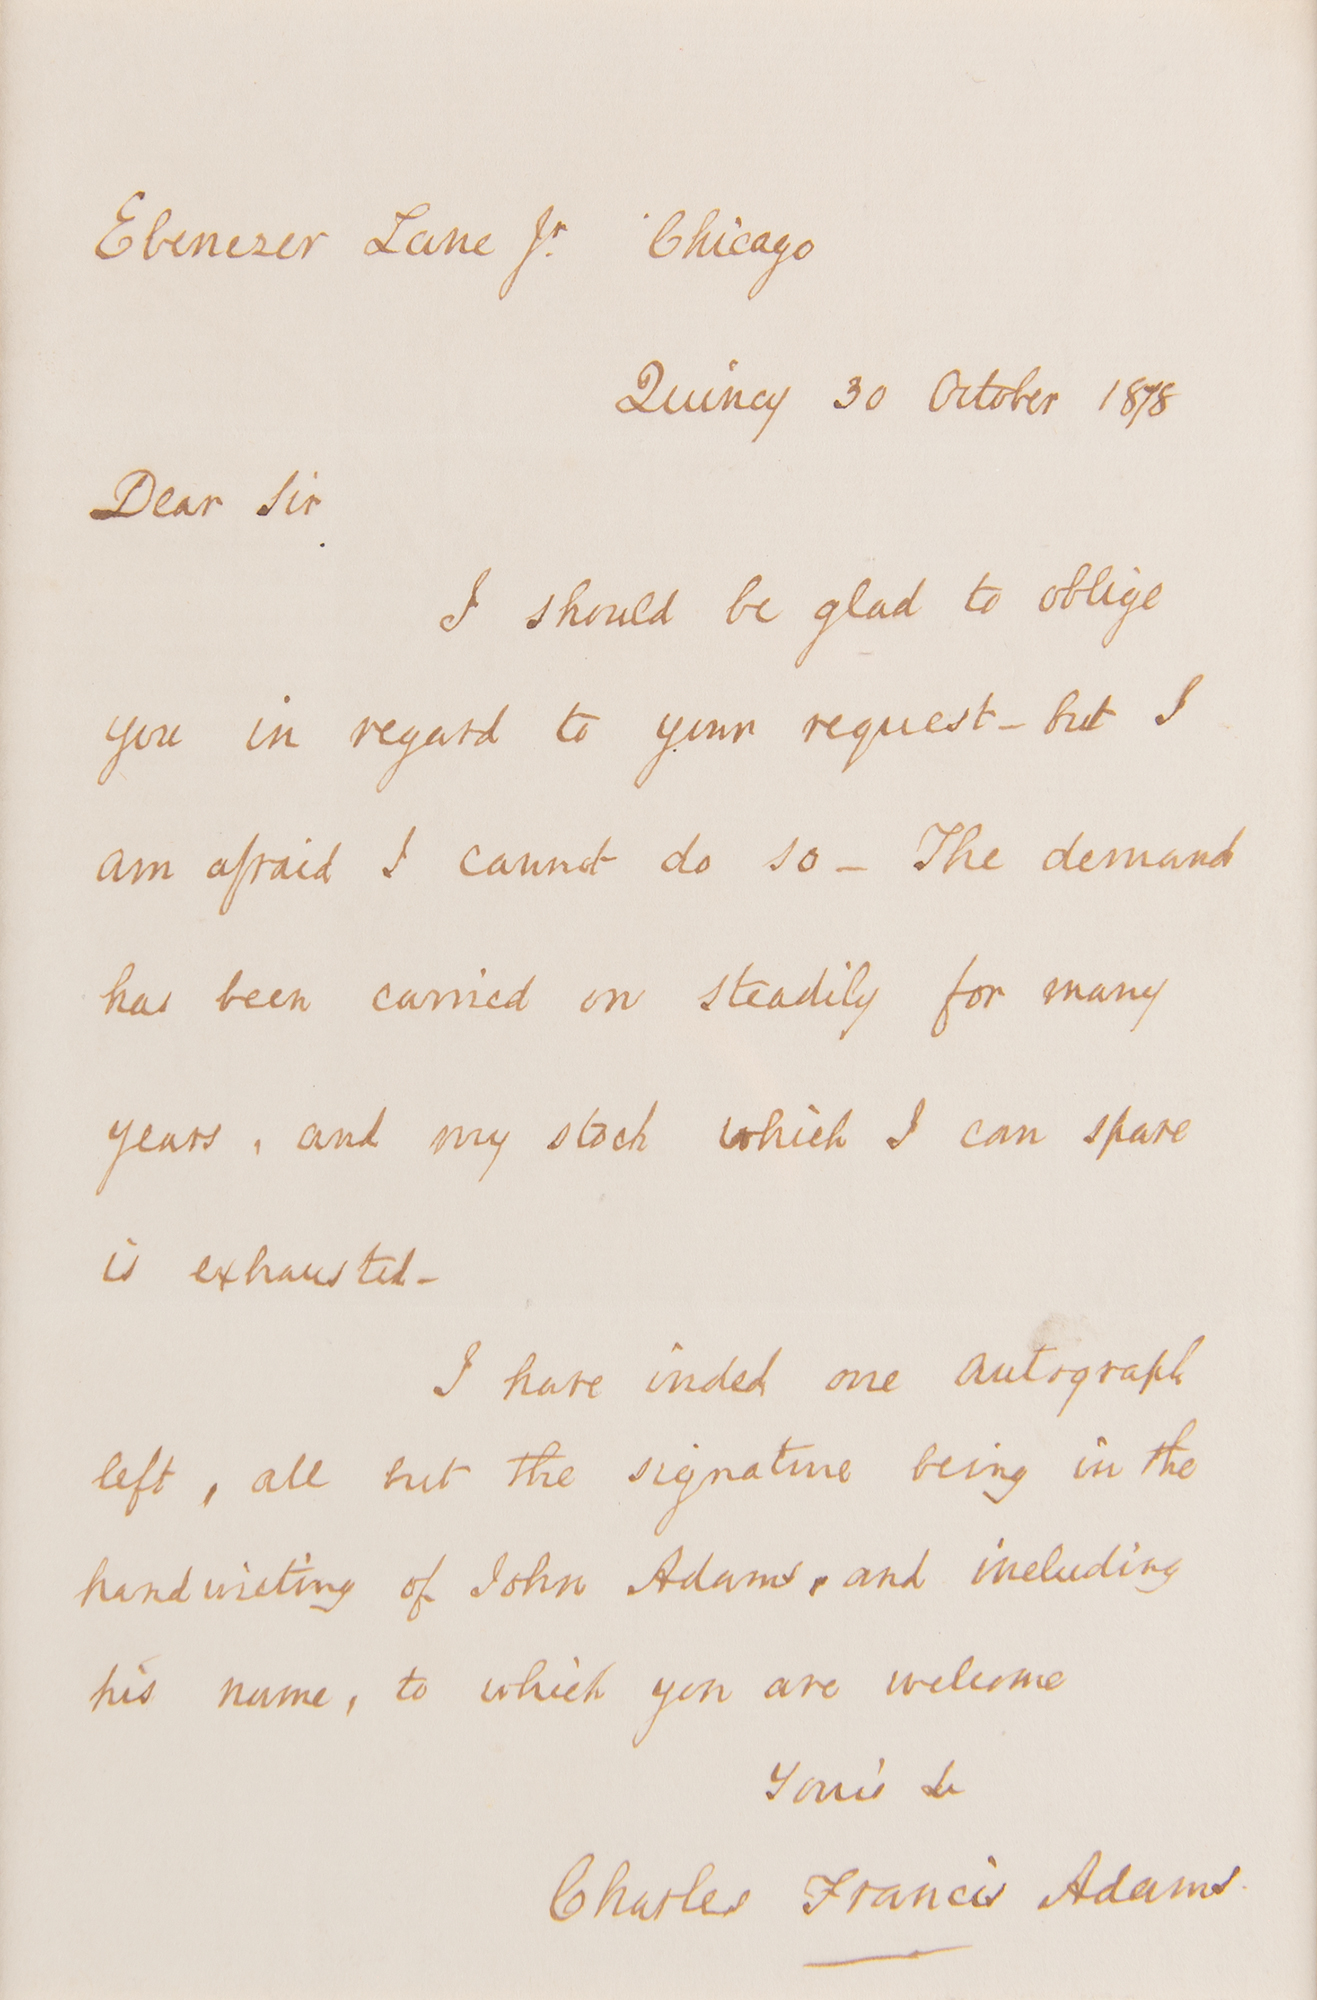 Ebenezer Lane Jr. Chicago
Quincy 30 October 1878
Dear Sir
I should be glad to oblige
you in regard to your request – but I
am afraid I cannot do so – The demand
has been carried on steadily for many
years, and my stock which I can spare
is exhausted –
I have inded one autograph
left, all but the signature being in the
handwriting of John Adams, and including
his name, to which you are welcome
Yours
Charles Francis Adams.